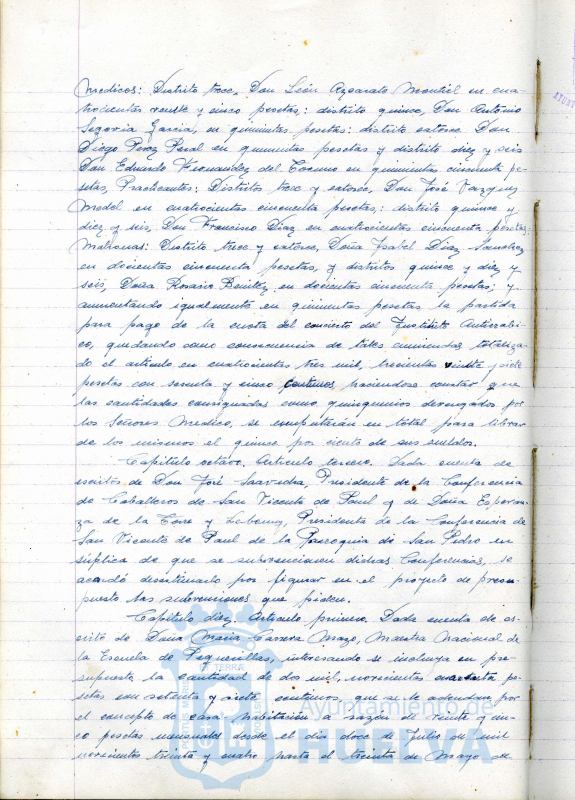 Medicos: Distrito trece, Don León Azcarate Montiel en cua-
trocientas veinte y cinco pesetas; distrito quince, Don Antonio
Segovia Garcia, en quinientas pesetas: distrito catorce Don
Diego Perez Peral en quinientas pesetas y distrito diez y seis
Don Eduardo Fernandez del Torno en quinientas cincuenta pe-
setas, Practicantes: Distritos trece y catorce, Don José Vazquez
Medel en cuatrocientas cincuenta pesetas; distritos quince y
diez y seis, Don Francisco Diaz en cuatrocientas cincuenta pesetas;
Matronas: Distrito trece y catorce, Doña Isabel Diaz Sanchez
en docientas cincuenta pesetas, y distritos quince y diez y
seis, Doña Rosario Benitez en docientas cincuenta pesetas; y
aumentando igualmente en quinientas pesetas la partida
para pago de la cuota del concierto del Instituto Antirrabi-
co, quedando como consecuencia de tales enmiendas totaliza-
do el articulo en cuatrocientas tres mil, trecientas veinte y siete
pesetas con sesenta y cinco centimos, haciendose constar que
las cantidades consignadas como quinquenios devengados por
los Señores Medico, se computarán en total para librar
de los mismos el quince por ciento de sus sueldos.
Capitulo octavo. Articulo tercero. Dada cuenta de
escritos de Don José Saavedra, Presidente de la Conferencia
de Caballeros de San Vicente de Paul y de Doña Esperan-
za de la Torre y Presidenta de la Conferencia de
San Vicente de Paul de la Parroquia de San Pedro en
súplica de que se subvencionen dichas Conferencias, se
acordó desestimarlo por figurar en el proyecto de presu-
puesto las subvenciones que piden.
Capitulo diez. Articulo primero. Dada cuenta de es-
crito de Doña Maria Carrera Mazo, Maestra Nacional de
la Escuela de Pequenillas, interesando se incluya en pre-
supuesto la cantidad de dos mil, novecientas cuarenta pe-
setas con setenta y siete centimos, que se le adeudan por
el concepto de casa habitación a razón de veinte y cin-
co pesetas mensuales desde el dia doce de Julio de mil
novecientos treinta y cuatro hasta el treinta de Mayo de
Ayuntamiento de
HUELVA